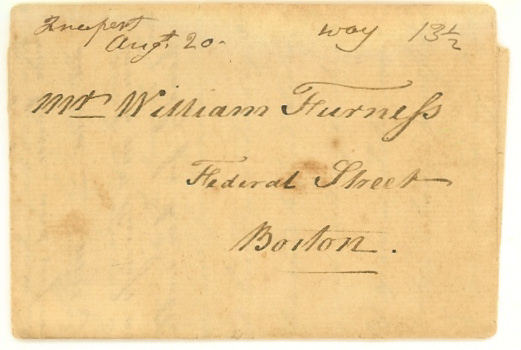 Aug.t 20. way 13 1/2
Mr. William Furneſs
Federal Street
Boston.